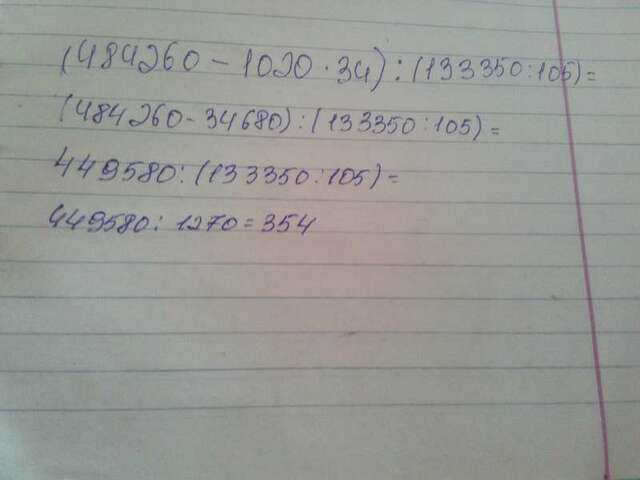 (484260 - 1020 · 34) : (133350 : 105) =
(484260 - 34680) : (133350 : 105) =
449580 : (133350 : 105) =
449580 : 1270 = 354